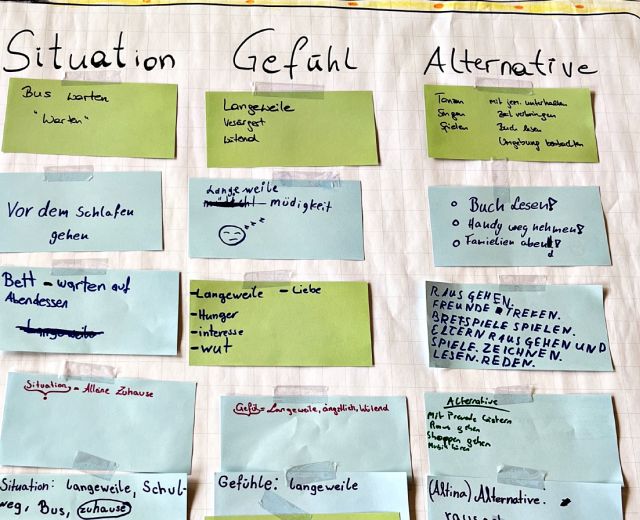 Situation
Gefühl
Alternative
Bus warten
"Warten"
Langeweile
Verärgert
Wütend
Tanzen
Singen
Spielen
mit jem. unterhalten
Zeit verbringen
Buch lesen
Umgebung beobachten
Vor dem Schlafen
gehen
Langeweile
müdigkeit
zzz
Buch Lesen!
Handy weg nehmen!
Familien abend!
Bett - warten auf
Abendessen
-Langeweile - Liebe
-Hunger
-interesse
-wut
RAUS GEHEN.
FREUNDE TREFEN.
BRETSPIELE SPIELEN.
ELTERN RAUS GEHEN UND
SPIELE. ZEICHNEN.
LESEN. REDEN.
Situation = Alleine Zuhause
Gefül = Langeweile, ängstlich, Wütend
Alternative
Mit Freunde
Raus gehen
Shoppen gehen
Musik hören
Situation: langeweile, Schul-
weg, Bus, zuhause
Gefühle: langeweile
(Altina) Alternative.
raus